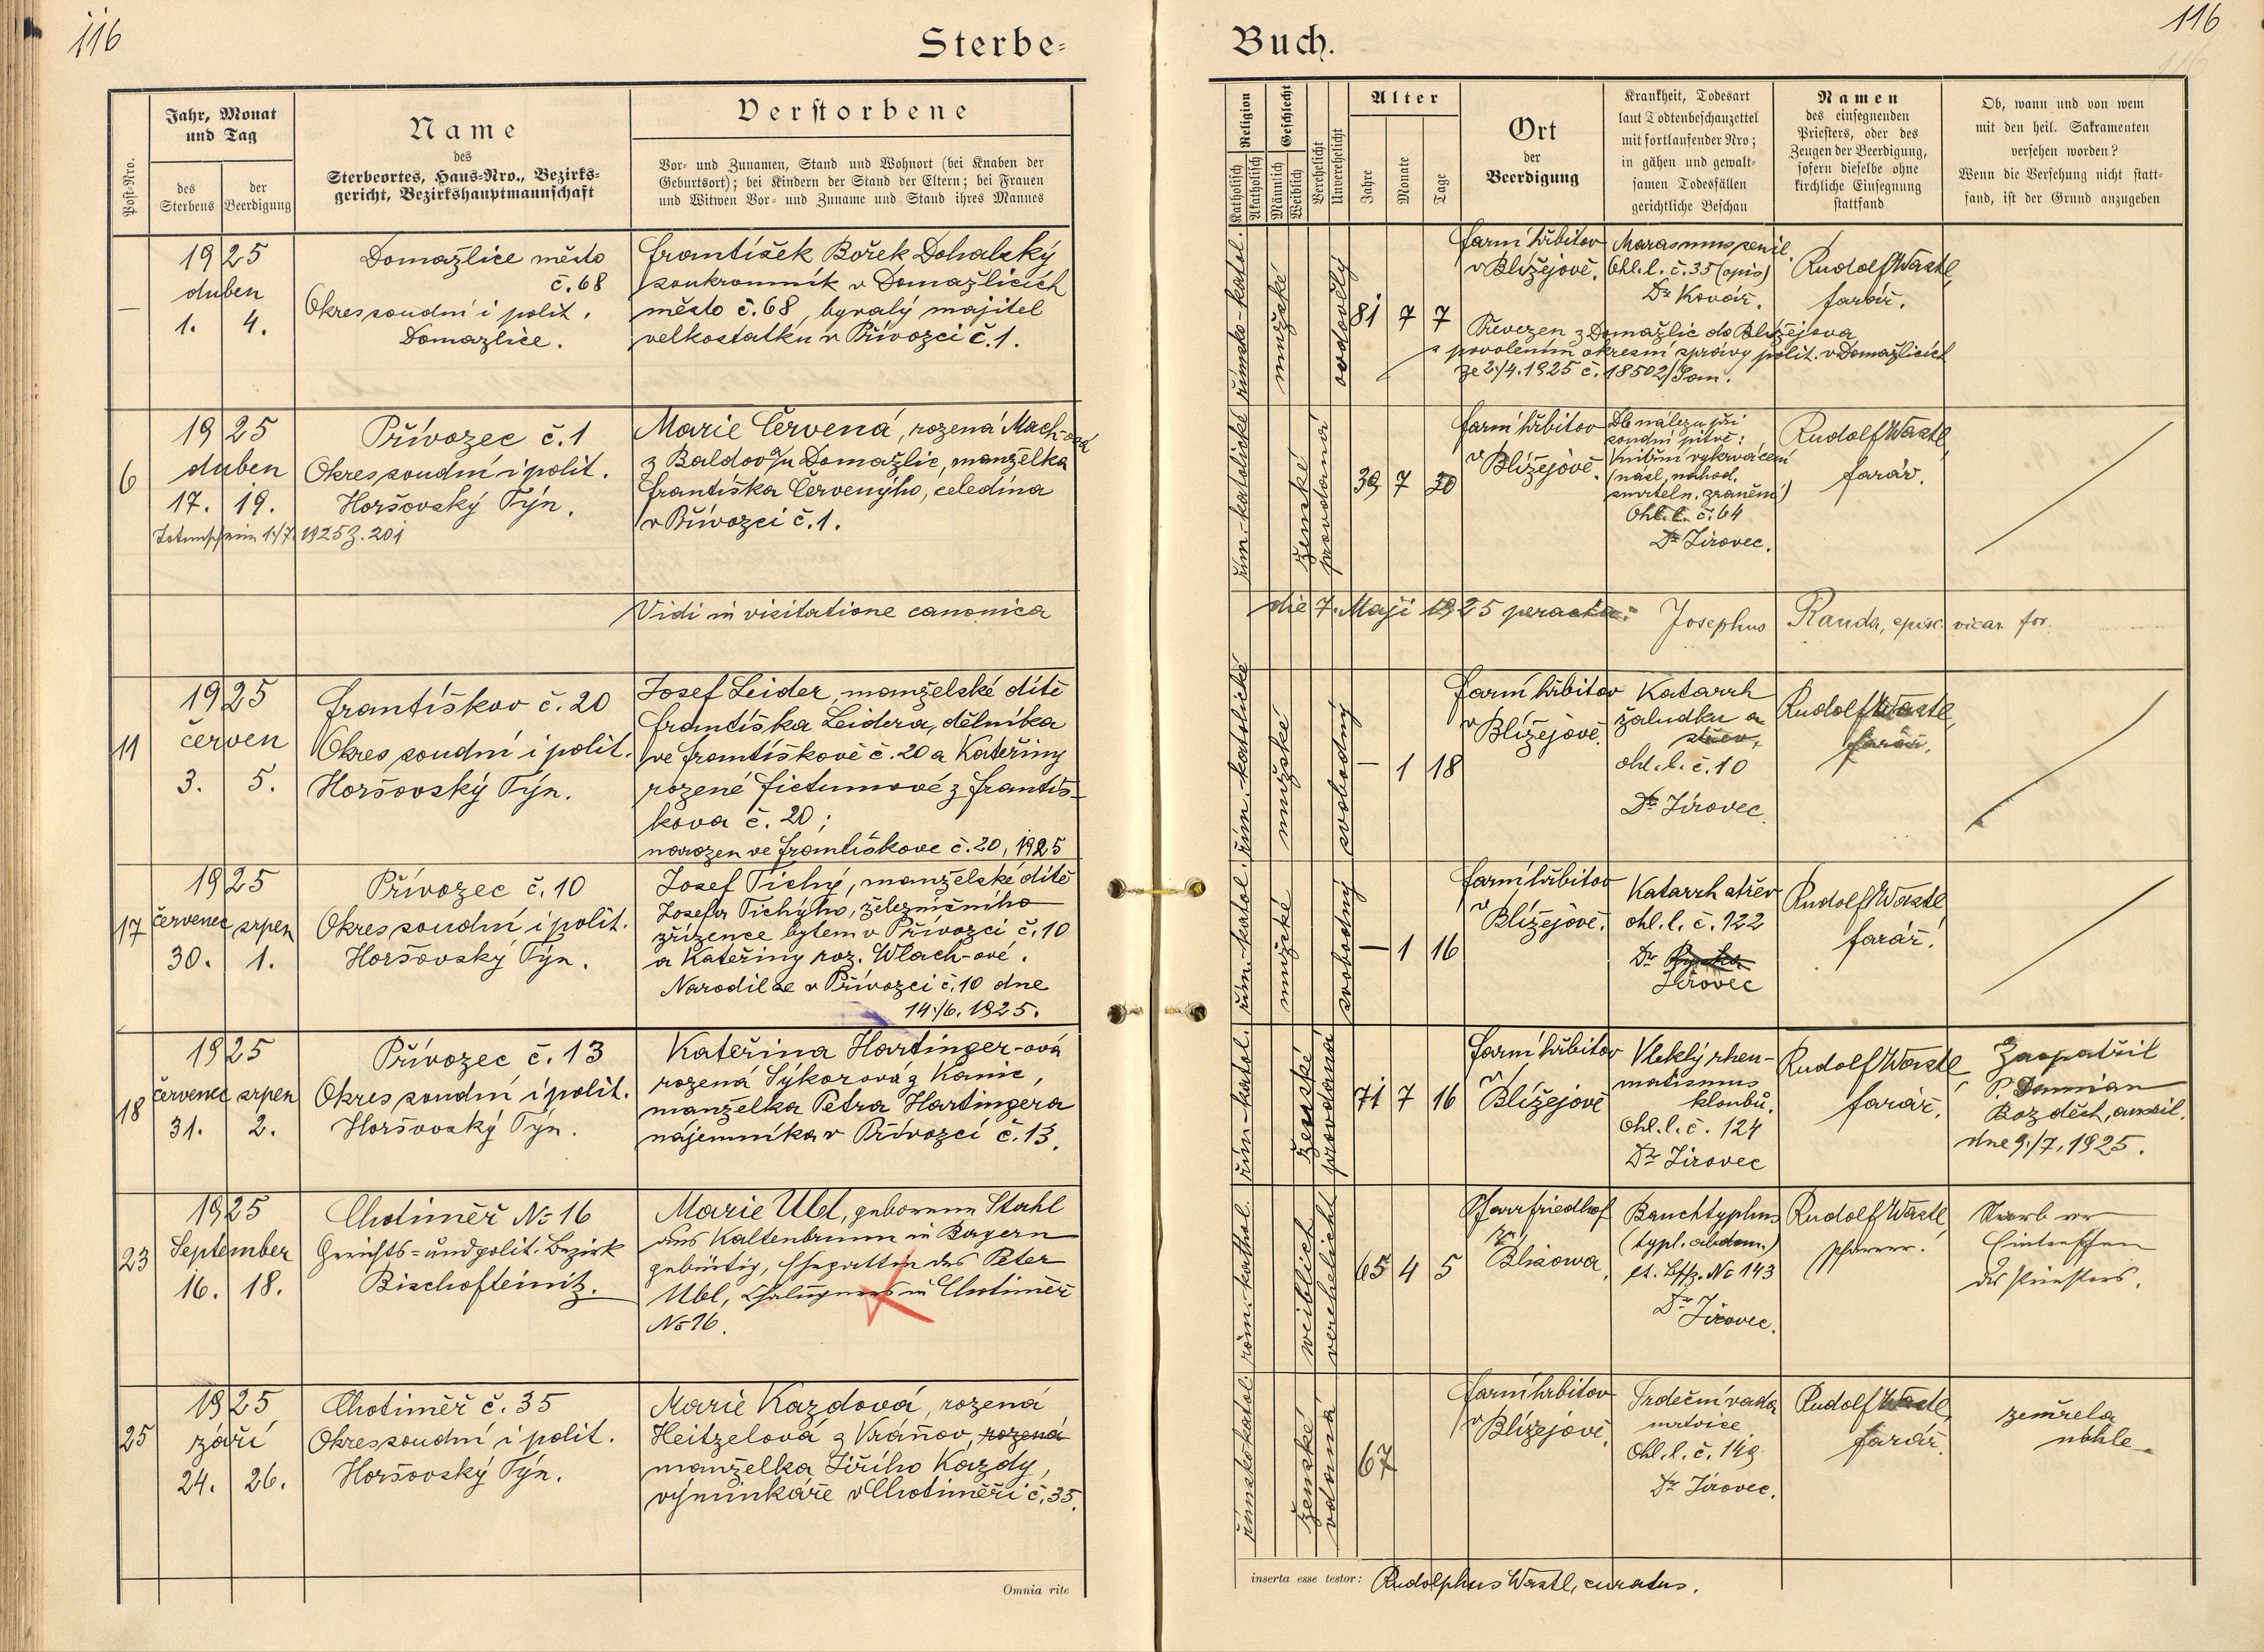 116
Sterbe-
Post-Nro.
Jahr, Monat
und Tag
des
Sterbens
der
Beerdigung
Name
des
Sterbeortes, Haus-Nro., Bezirks-
gericht, Bezirkshauptmannschaft
Verstorbene
Vor- und Zunamen, Stand und Wohnort (bei Knaben der
Geburtsort); bei Kindern der Stand der Eltern; bei Frauen
und Witwen Vor- und Zuname und Stand ihres Mannes
—
1925
duben
1. 4.
Domažlice město
č. 68
Okres soudní i polit.
Domažlice.
František Bořek Dohalský
soukromník v Domažlicích
město č. 68, bývalý majitel
velkostatku v Přívozci č. 1.
6
1925
duben
17. 19.
Totenschein 1./7. 1925 Z. 201
Přívozec č. 1
Okres soudní i polit.
Horšovský Týn.
Marie Červená, rozená Mach-ová
z Baldova u Domažlic, manželka
Františka Červenýho, čeledína
v Přívozci č. 1.
Vidi in visitatione canonica
11
1925
červen
3. 5.
Františkov č. 20
Okres soudní i polit.
Horšovský Týn.
Josef Leider, manželské dítě
Františka Leidera, dělníka
ve Františkově č. 20 a Kateřiny
rozené Fictumové z Františ-
kova č. 20;
narozen ve Františkove č. 20, 1925
17
1925
červenec srpen
30. 1.
Přívozec č. 10
Okres soudní i polit.
Horšovský Týn.
Josef Tichý, manželské dítě
Josefa Tichýho, železničního
zřízence bytem v Přívozci č. 10
a Kateřiny roz. Wlach-ové.
Narodil se v Přívozci č. 10 dne
14./6. 1925.
18
1925
červenec srpen
31. 2.
Přívozec č. 13
Okres soudní i polit.
Horšovský Týn.
Kateřina Hartinger-ová
rozená Sýkorová z Kanic,
manželka Petra Hartingera
nájemníka v Přívozci č. 13.
23
1925
September
16. 18.
Chotiměř No 16
Gerichts- und polit. Bezirk
Bischofteinitz.
Marie Ubl, geborene Stahl
aus Kaltenbrunn in Bayern
gebürtig, Ehegattin des Peter
Ubl, Chalupners in Chotiměř
No 16.
25
1925
září
24. 26.
Chotiměř č. 35
Okres soudní i polit.
Horšovský Týn.
Marie Kazdová, rozená
Heitzelová z Vráňov, rozená
manželka Jiřího Kazdy,
výminkáře v Chotiměři č. 35.
Omnia rite
116
Buch.
Religion
Katholisch
Akatholisch
Geschlecht
Männlich
Weiblich
Verehelicht
Unverehelicht
Alter
Jahre
Monate
Tage
Ort
der
Beerdigung
Krankheit, Todesart
laut Todtenbeschauzettel
mit fortlaufender Nro;
in gähen und gewalt-
samen Todesfällen
gerichtliche Beschau
Namen
des einsegnenden
Priesters, oder des
Zeugen der Beerdigung,
sofern dieselbe ohne
kirchliche Einsegnung
stattfand
Ob, wann und von wem
mit den heil. Sakramenten
versehen worden?
Wenn die Versehung nicht statt-
fand, ist der Grund anzugeben
římsko-katol.
mužské
ovdovělý
81 7 7
farní hřbitov
v Blížejově.
Marasmus senil.
Ohl. l. č. 35 (opis)
Dr Kovář.
Rudolf Wastl,
farář.
Převezen z Domažlic do Blížejova
s povolením okresní správy polit. v Domažlicích
ze 2./4. 1925 č. 18502/Pom.
řím.-katolické
ženské
provdaná
39 7 30
farní hřbitov
v Blížejově.
Dle nálezu při
soudní pitvě:
Vnitřní vykrvácení
(násl. náhod.
smrteln. zranění)
Ohl. l. č. 64
Dr Jírovec.
Rudolf Wastl,
farář.
die 7. Maji 1925 peracta:
Josephus Randa, episc. vicar. for.
řím.-katolické
mužské
svobodný
— 1 18
farní hřbitov
v Blížejově.
Katarrh
žaludku a
střev,
ohl. l. č. 10
Dr Jírovec.
Rudolf Wastl,
farář.
řím.-katol.
mužské
svobodný
— 1 16
farní hřbitov
v
Blížejově.
Katarrh střev
ohl. l. č. 122
Dr
Jírovec
Rudolf Wastl
farář.
řím.-katol.
ženské
provdaná
71 7 16
farní hřbitov
v
Blížejově
Vleklý rheu-
matismus
kloubů.
Ohl. l. č. 124
Dr Jírovec
Rudolf Wastl,
farář.
Zaopatřil
P. Damian
Bozděch, auxil.
dne 9./7. 1925.
röm.-kathol.
weiblich
verehelicht
65 4 5
Pfarrfriedhof
zu
Blisowa.
Bauchtyphus
(typh. abdom.)
lt. Bschz. No 143
Dr Jírovec.
Rudolf Wastl
Pfarrer.
Starb vor
Eintreffen
des Priesters.
římskokatol.
ženské
vdaná
67
farní hřbitov
v Blížejově.
Srdeční vada
mrtvice
Ohl. l. č. 149
Dr Jírovec.
Rudolf Wastl,
farář.
zemřela
náhle
inserta esse testor: Rudolphus Wastl, curatus.